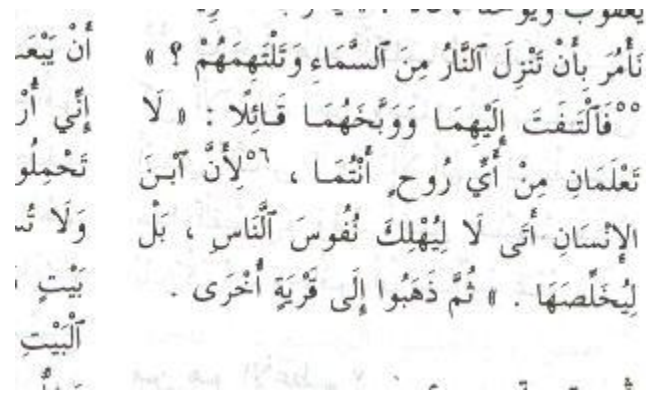 نَأْمُرَ بِأَنْ تَنْزِلَ ٱلنَّارُ مِنَ ٱلسَّمَاءِ وَتَلْتَهِمَهُمْ ؟ »
٥٥فَٱلْتَفَتَ إِلَيْهِمَا وَوَبَّخَهُمَا قَائِلًا : « لَا
تَعْلَمَانِ مِنْ أَيِّ رُوحٍ أَنْتُمَا ، ٥٦لِأَنَّ ٱبْنَ
الإِنْسَانِ أَتَى لَا لِيُهْلِكَ نُفُوسَ ٱلنَّاسِ ، بَلْ
لِيُخَلِّصَهَا . » ثُمَّ ذَهَبُوا إِلَى قَرْيَةٍ أُخْرَى .
أَنْ
إِنِّي
وَلَا
بَيْتٍ
ٱلْبَيْتِ